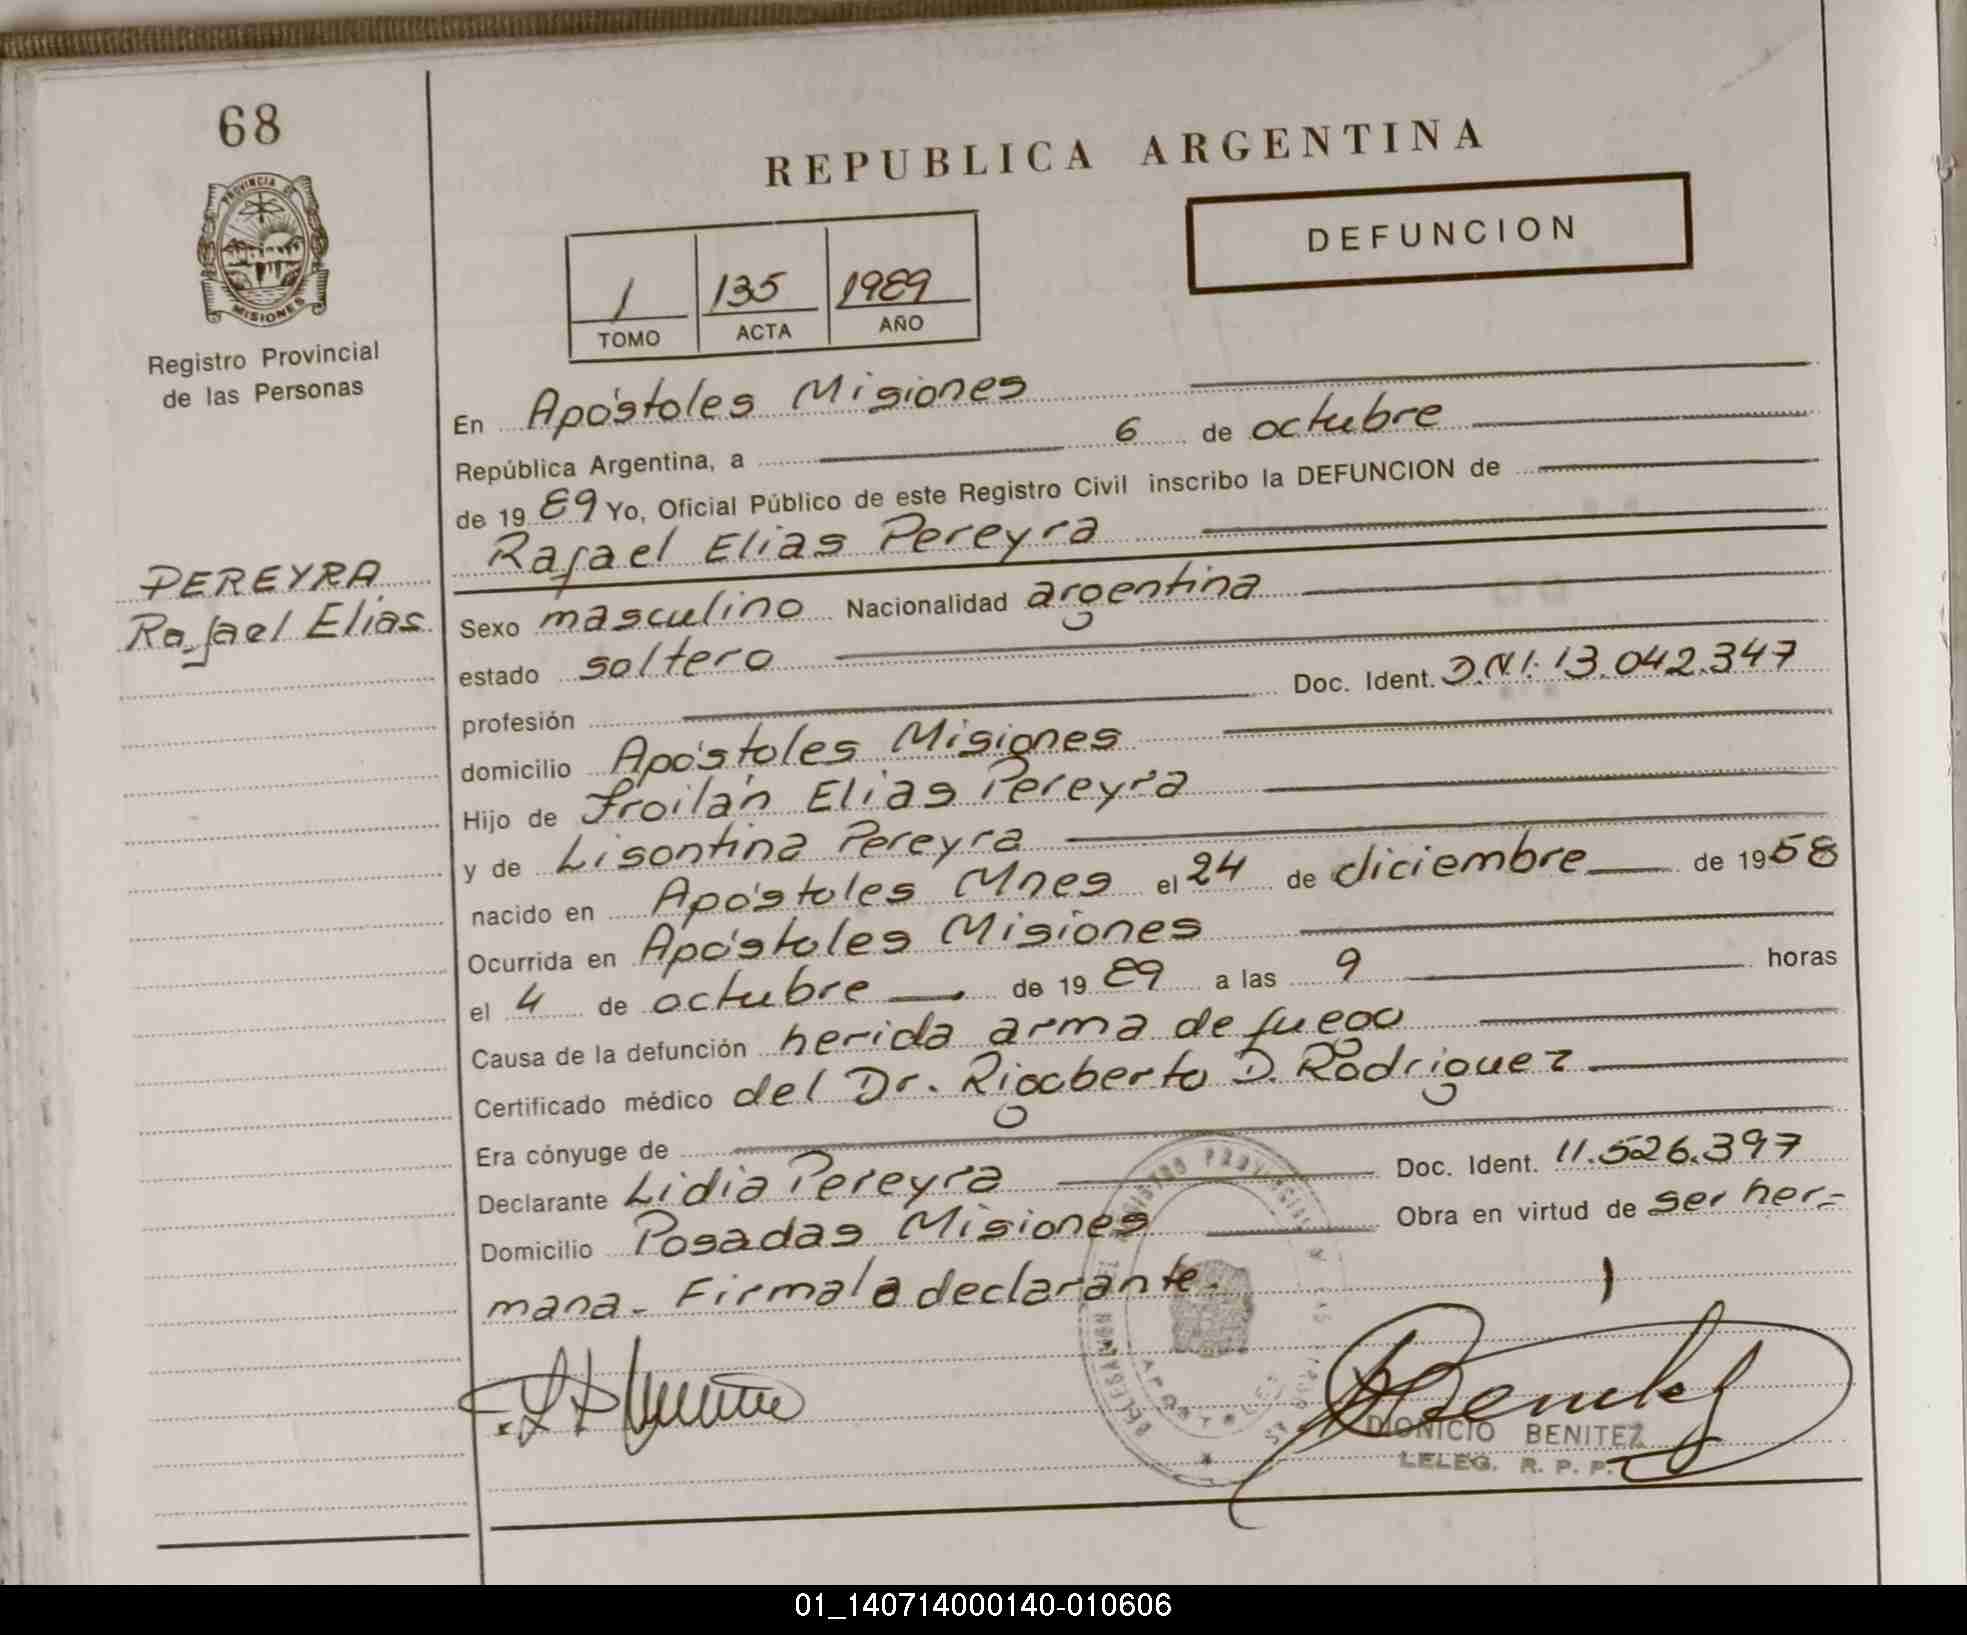 68
PROVINCIA DE
MISIONES
Registro Provincial
de las Personas
PEREYRA
Rafael Elias
REPUBLICA ARGENTINA
DEFUNCION
1 135 1989
TOMO ACTA AÑO
En Apóstoles Misiones
República Argentina, a 6 de octubre
de 19 89 Yo, Oficial Público de este Registro Civil inscribo la DEFUNCION de
Rafael Elias Pereyra
Sexo masculino Nacionalidad argentina
estado soltero
profesión Doc. Ident. D.N.I. 13.042.347
domicilio Apóstoles Misiones
Hijo de Froilán Elias Pereyra
y de Lisontina Pereyra
nacido en Apóstoles Mnes el 24 de diciembre de 19 58
Ocurrida en Apóstoles Misiones
el 4 de octubre de 19 89 a las 9 horas
Causa de la defunción herida arma de fuego
Certificado médico del Dr. Rigoberto D. Rodriguez
Era cónyuge de
Declarante Lidia Pereyra Doc. Ident. 11.526.397
Domicilio Posadas Misiones Obra en virtud de ser her-
mana. Firma la declarante.
REGISTRO PROVINCIAL
APOSTOLES
DIONICIO BENITEZ
LELEG. R. P. P.
01_140714000140-010606